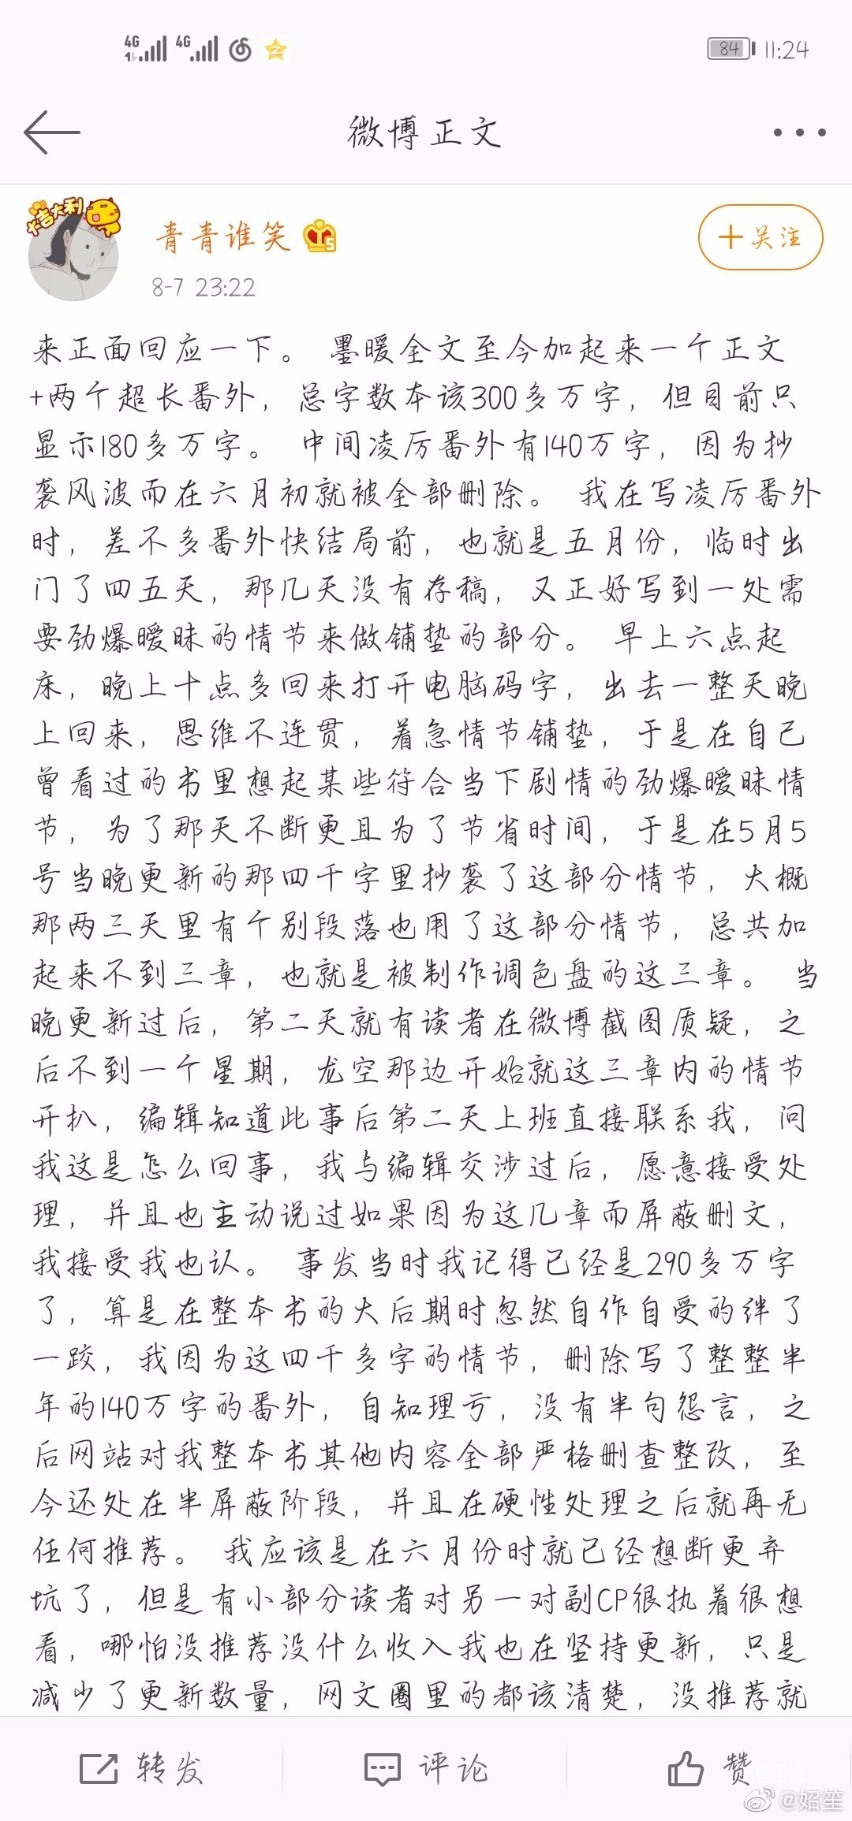 4G 4G 84 11:24
微博正文
大吉大利
青青谁笑
+关注
8-7 23:22
来正面回应一下。 墨暖全文至今加起来一个正文
+两个超长番外，总字数本该300多万字，但目前只
显示180多万字。 中间凌厉番外有140万字，因为抄
袭风波而在六月初就被全部删除。 我在写凌厉番外
时，差不多番外快结局前，也就是五月份，临时出
门了四五天，那几天没有存稿，又正好写到一处需
要劲爆暧昧的情节来做铺垫的部分。 早上六点起
床，晚上十点多回来打开电脑码字，出去一整天晚
上回来，思维不连贯，着急情节铺垫，于是在自己
曾看过的书里想起某些符合当下剧情的劲爆暧昧情
节，为了那天不断更且为了节省时间，于是在5月5
号当晚更新的那四千字里抄袭了这部分情节，大概
那两三天里有个别段落也用了这部分情节，总共加
起来不到三章，也就是被制作调色盘的这三章。 当
晚更新过后，第二天就有读者在微博截图质疑，之
后不到一个星期，龙空那边开始就这三章内的情节
开扒，编辑知道此事后第二天上班直接联系我，问
我这是怎么回事，我与编辑交涉过后，愿意接受处
理，并且也主动说过如果因为这几章而屏蔽删文，
我接受我也认。 事发当时我记得已经是290多万字
了，算是在整本书的大后期时忽然自作自受的绊了
一跤，我因为这四千多字的情节，删除写了整整半
年的140万字的番外，自知理亏，没有半句怨言，之
后网站对我整本书其他内容全部严格删查整改，至
今还处在半屏蔽阶段，并且在硬性处理之后就再无
任何推荐。 我应该是在六月份时就已经想断更弃
坑了，但是有小部分读者对另一对副CP很执着很想
看，哪怕没推荐没什么收入我也在坚持更新，只是
减少了更新数量，网文圈里的都该清楚，没推荐就
转发 评论 赞
@妱笙